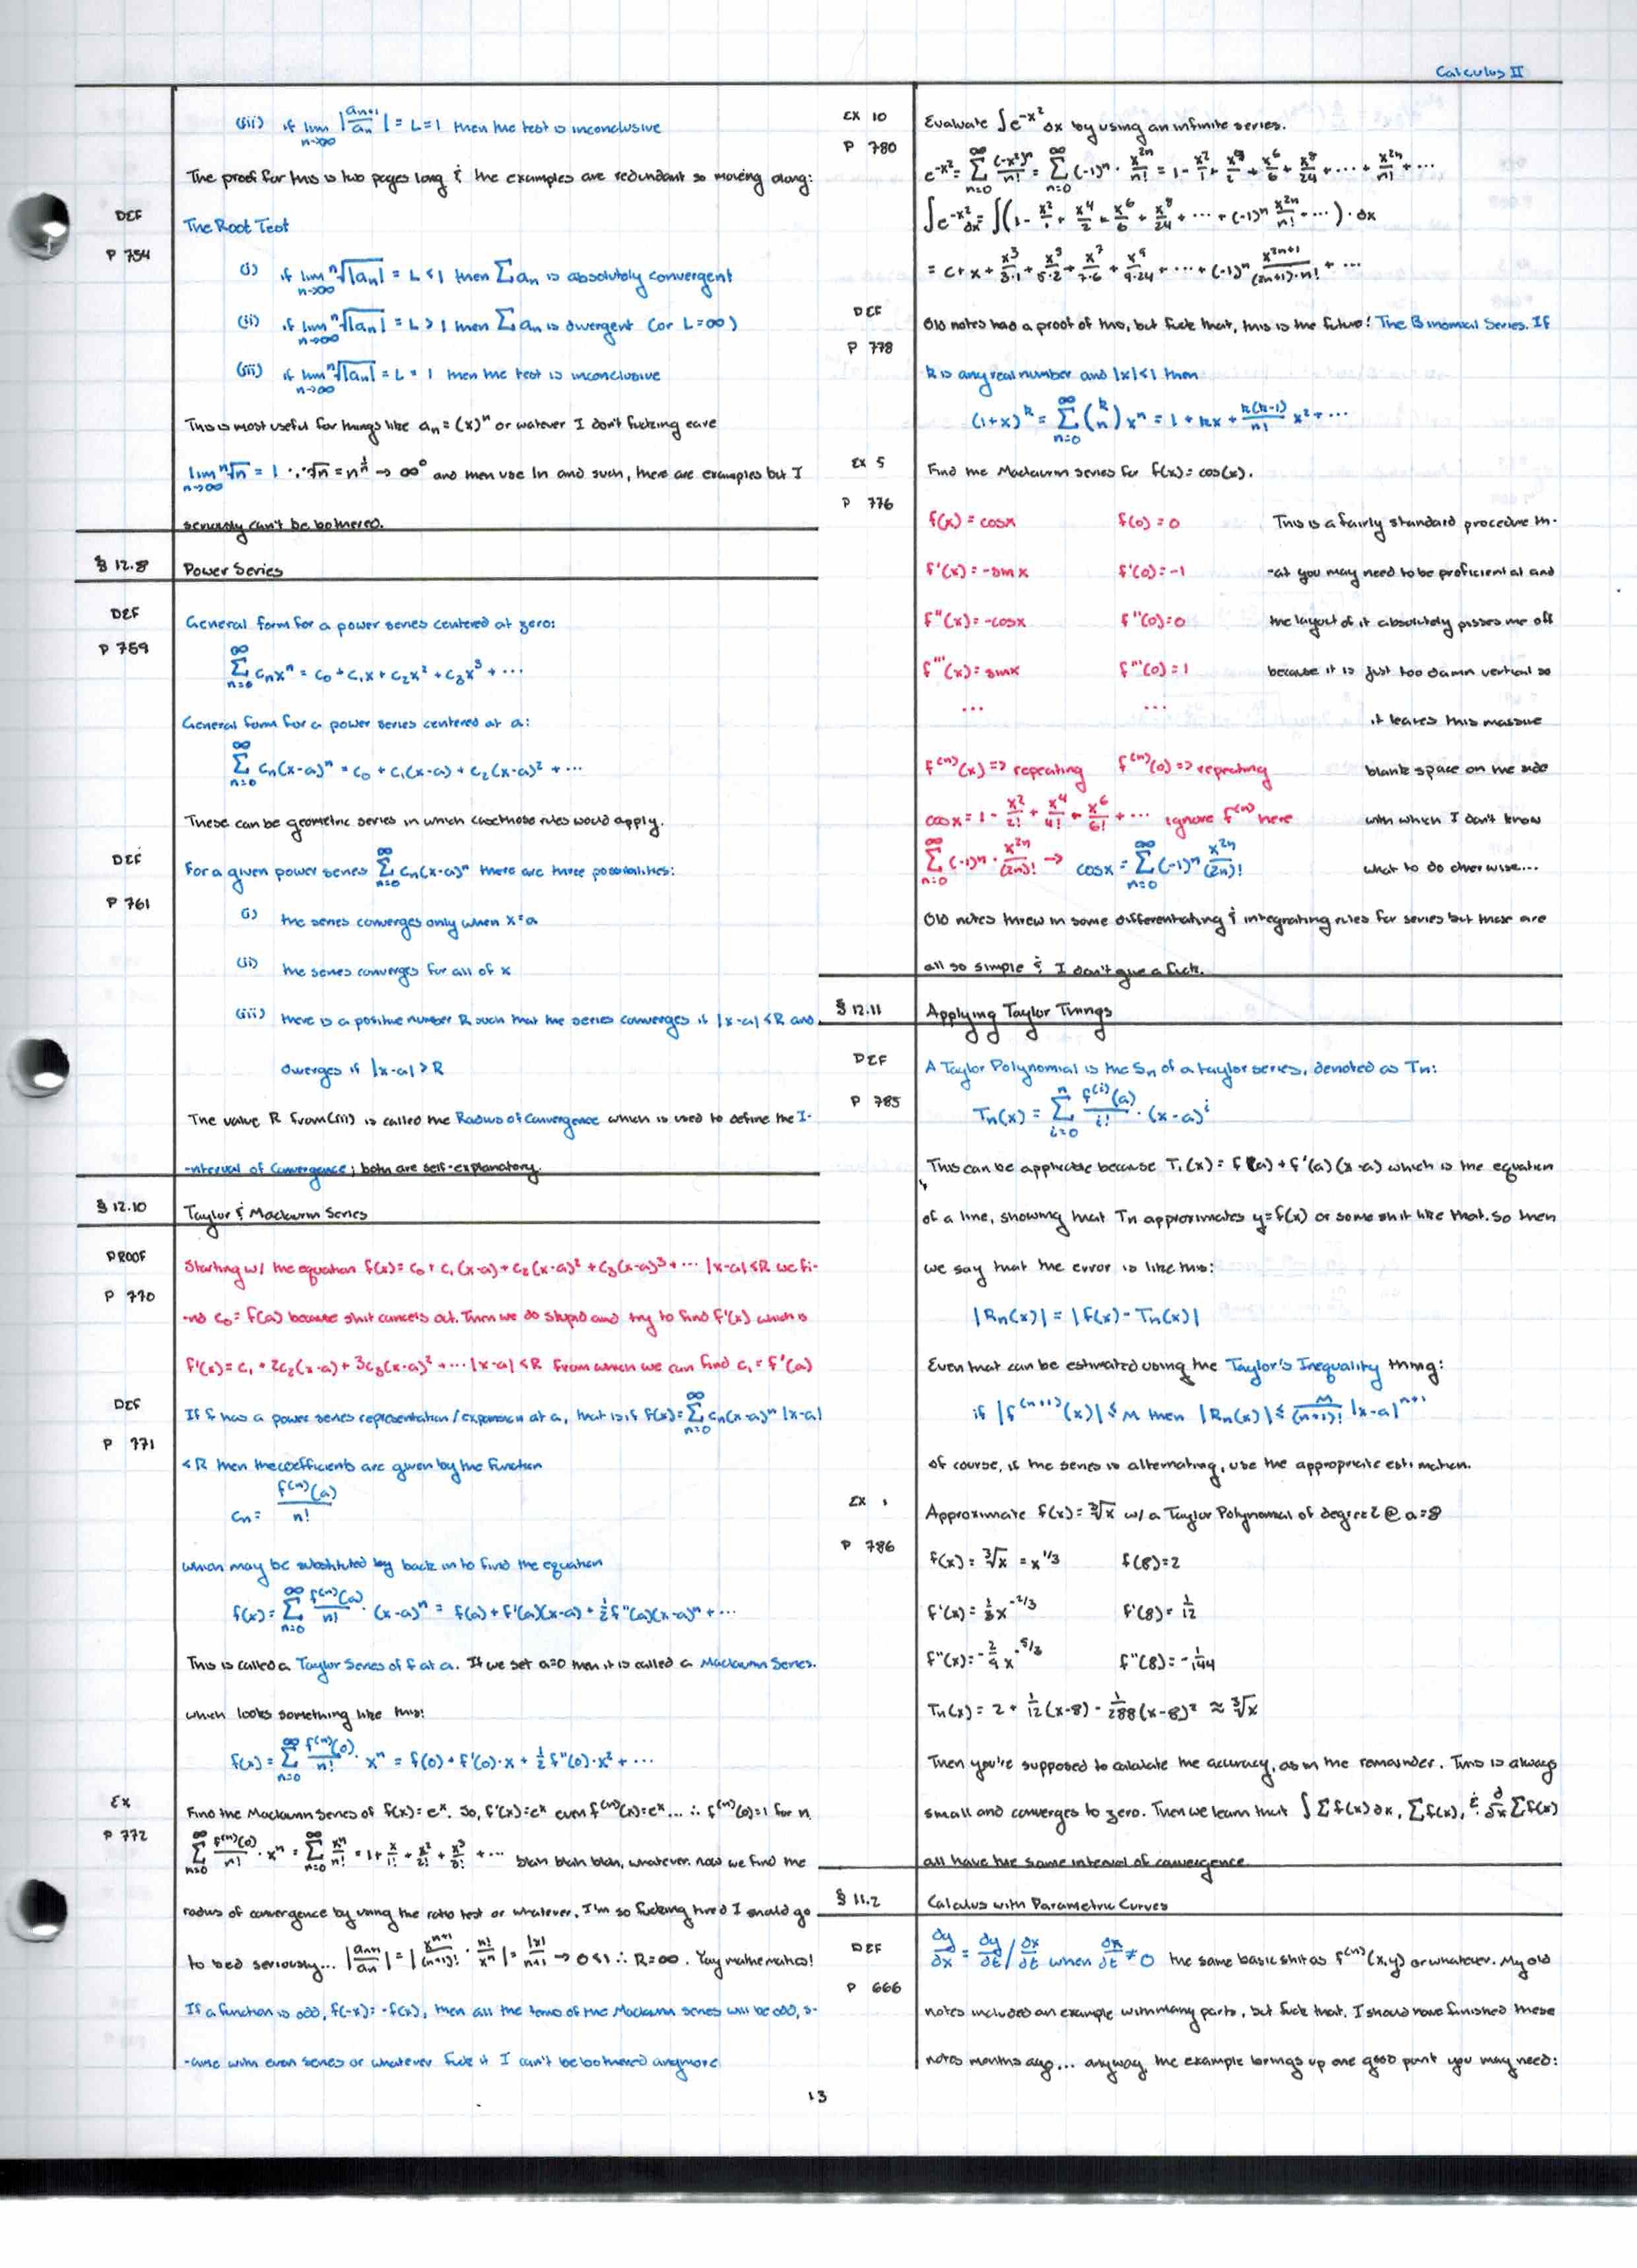 Calculus II
(iii) if lim n→∞ |aₙ₊₁/aₙ| = L=1 then the test is inconclusive
The proof for this is two pages long & the examples are redundant so moving along:
DEF
P 754
The Root Test
(i) if lim n→∞ ⁿ√|aₙ| = L < 1 then ∑aₙ is absolutely convergent
(ii) if lim n→∞ ⁿ√|aₙ| = L > 1 then ∑aₙ is divergent (or L=∞)
(iii) if lim n→∞ ⁿ√|aₙ| = L = 1 then the test is inconclusive
This is most useful for things like aₙ = (x)ⁿ or watever I don't fucking care
lim n→∞ ⁿ√n = 1 ∵ ⁿ√n = n^(1/n) → ∞⁰ and then use ln and such, there are examples but I
seriously can't be bothered.
§ 12.8 Power Series
DEF
P 759
General form for a power series centered at zero:
∞∑n=0 cₙxⁿ = c₀ + c₁x + c₂x² + c₃x³ + ⋯
General form for a power series centered at a:
∞∑n=0 cₙ(x-a)ⁿ = c₀ + c₁(x-a) + c₂(x-a)² + ⋯
These can be geometric series in which case those rules would apply.
DEF
P 761
For a given power series ∞∑n=0 cₙ(x-a)ⁿ there are three possibilities:
(i) the series converges only when x=a
(ii) the series converges for all of x
(iii) there is a positive number R such that the series converges if |x-a| < R and
diverges if |x-a| > R
The value R from (iii) is called the Radius of Convergence which is used to define the I-
-nterval of Convergence; both are self-explanatory.
§ 12.10 Taylor & Maclaurin Series
PROOF
P 770
Starting w/ the equation f(x) = c₀ + c₁(x-a) + c₂(x-a)² + c₃(x-a)³ + ⋯ |x-a| < R we fi-
-nd c₀ = f(a) because shit cancels out. Then we do stupid and try to find f'(x) which is
f'(x) = c₁ + 2c₂(x-a) + 3c₃(x-a)² + ⋯ |x-a| < R from which we can find c₁ = f'(a)
DEF
P 771
If f has a power series representation/expansion at a, that is if f(x) = ∞∑n=0 cₙ(x-a)ⁿ |x-a|
< R then the coefficients are given by the function
cₙ = f⁽ⁿ⁾(a)/n!
which may be substituted by back in to find the equation
f(x) = ∞∑n=0 f⁽ⁿ⁾(a)/n! · (x-a)ⁿ = f(a) + f'(a)(x-a) + ½f''(a)(x-a)ⁿ + ⋯
This is called a Taylor Series of f at a. If we set a=0 then it is called a Maclaurin Series.
which looks something like this:
f(x) = ∞∑n=0 f⁽ⁿ⁾(0)/n! · xⁿ = f(0) + f'(0)·x + ½f''(0)·x² + ⋯
EX
P 772
Find the Maclaurin Series of f(x) = eˣ. So, f'(x) = eˣ even f⁽ⁿ⁾(x) = eˣ... ∴ f⁽ⁿ⁾(0)=1 for n.
∞∑n=0 f⁽ⁿ⁾(0)/n! · xⁿ = ∞∑n=0 xⁿ/n! = 1 + x/1! + x²/2! + x³/3! + ⋯ blah blah blah, whatever. now we find the
radius of convergence by using the ratio test or whatever. I'm so fucking tired I should go
to bed seriously... |aₙ₊₁/aₙ| = |xⁿ⁺¹/(n+1)! · n!/xⁿ| = |x|/n+1 → 0<1 ∴ R=∞. Yay mathematics!
If a function is odd, f(-x) = -f(x), then all the terms of the Maclaurin series will be odd, s-
-ame with even series or whatever fuck it I can't be bothered anymore
EX 10
P 780
Evaluate ∫e^(-x²) dx by using an infinite series.
e^(-x²) = ∞∑n=0 (-x²)ⁿ/n! = ∞∑n=0 (-1)ⁿ · x²ⁿ/n! = 1 - x²/1 + x⁴/2 + x⁶/6 + x⁸/24 + ⋯ + x²ⁿ/n! + ⋯
∫e^(-x²)dx = ∫(1 - x²/1 + x⁴/2 + x⁶/6 + x⁸/24 + ⋯ + (-1)ⁿ x²ⁿ/n! + ⋯) · dx
= C + x + x³/3·1 + x⁵/5·2 + x⁷/7·6 + x⁹/9·24 + ⋯ + (-1)ⁿ x²ⁿ⁺¹/(2n+1)·n! + ⋯
DEF
P 778
Old notes had a proof of this, but fuck that, this is the future! The Binomial Series. If
k is any real number and |x| < 1 then
(1+x)ᵏ = ∞∑n=0 (k n) xⁿ = 1 + kx + k(k-1)/n! x² + ⋯
EX 5
P 776
Find the Maclaurin series for f(x) = cos(x).
f(x) = cosx f(0) = 0 This is a fairly standard procedure th-
f'(x) = -sinx f'(0) = -1 -at you may need to be proficient at and
f''(x) = -cosx f''(0) = 0 the layout of it absolutely pisses me off
f'''(x) = sinx f'''(0) = 1 because it is just too damn vertical so
... ... it leaves this massive
f⁽ⁿ⁾(x) => repeating f⁽ⁿ⁾(0) => repeating blank space on the side
cosx = 1 - x²/2! + x⁴/4! + x⁶/6! + ⋯ ignore f⁽ⁿ⁾ here with which I don't know
∞∑n=0 (-1)ⁿ · x²ⁿ/(2n)! → cosx = ∞∑n=0 (-1)ⁿ x²ⁿ/(2n)! what to do otherwise...
Old notes threw in some differentiating & integrating rules for series but those are
all so simple & I don't give a fuck.
§ 12.11 Applying Taylor Thingys
DEF
P 785
A Taylor Polynomial is the Sₙ of a taylor series, denoted as Tₙ:
Tₙ(x) = n∑i=0 f⁽ⁱ⁾(a)/i! · (x-a)ⁱ
This can be applicable because T₁(x) = f(a) + f'(a)(x-a) which is the equation
of a line, showing that Tₙ approximates y=f(x) or some shit like that. So then
we say that the error is like this:
|Rₙ(x)| = |f(x) - Tₙ(x)|
Even that can be estimated using the Taylor's Inequality thing:
if |f⁽ⁿ⁺¹⁾(x)| ≤ M then |Rₙ(x)| ≤ M/(n+1)! |x-a|ⁿ⁺¹
of course, if the series is alternating, use the appropriate estimation.
EX 1
P 786
Approximate f(x) = ³√x w/ a Taylor Polynomial of degree 2 @ a=8
f(x) = ³√x = x^(1/3) f(8)=2
f'(x) = ⅓x^(-2/3) f'(8) = 1/12
f''(x) = -2/9 x^(-5/3) f''(8) = -1/144
Tₙ(x) = 2 + 1/12(x-8) - 1/288(x-8)² ≈ ³√x
Then you're supposed to calculate the accuracy, as in the remainder. This is always
small and converges to zero. Then we learn that ∫∑f(x)dx, ∑f(x), & d/dx ∑f(x)
all have the same interval of convergence
§ 11.2 Calculus with Parametric Curves
DEF
P 666
dy/dx = dy/dt / dx/dt when dx/dt ≠ 0 the same basic shit as f⁽ⁿ⁾(x,y) or whatever. My old
notes included an example with many parts, but fuck that. I should have finished these
notes months ago... anyway, the example brings up one good point you may need:
13